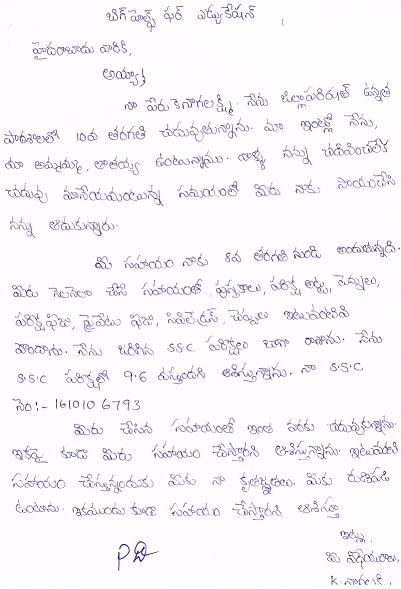 బిగ్ హెల్ప్ ఫర్ ఎడ్యుకేషన్
హైదరాబాదు వారికి,
అయ్యా,
నా పేరు K.నాగలక్ష్మి. నేను జిల్లాపరిషత్ ఉన్నత
పాఠశాలలో 10వ తరగతి చదువుతున్నాను. మా ఇంట్లో నేను,
మా అమ్మమ్మ, తాతయ్య ఉంటున్నాము. వాళ్ళు నన్ను చదివించలేక
చదువు మానేయమంటున్న సమయంలో మీరు నాకు సాయంచేసి
నన్ను ఆదుకున్నారు.
మీ సహాయం నాకు 8వ తరగతి నుండి అందుతున్నది.
మీరు నెలనెలా చేసే సహాయంతో పుస్తకాలు, పరీక్ష అట్ట, పెన్నులు,
పరీక్ష ఫీజు, ప్రైవేటు ఫీజు, సివిల్ డ్రెస్, చెప్పులు ఇటువంటివి
పొందాను. నేను జరిగిన S.S.C పరీక్షలు బాగా రాశాను. నేను
S.S.C పరీక్షలో 9.6 వస్తుందని ఆశిస్తున్నాను. నా S.S.C
నెం:- 161010 6793
మీరు చేసిన సహాయంతో ఇంత వరకు చదువుకున్నాను.
ఇకపై కూడా మీరు సహాయం చేస్తారని ఆశిస్తున్నాను. ఇటువంటి
సహాయం చేస్తున్నందుకు మీకు నా కృతజ్ఞతలు. మీకు రుణపడి
ఉంటాను. ఇకముందు కూడా సహాయం చేస్తారని ఆశిస్తూ
ఇట్లు
మీ విధేయురాలు,
K.నాగలక్ష్మి.